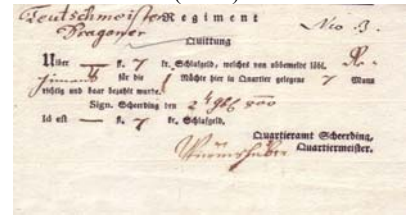 Teutschmeister Regiment
Dragoner Nro 3.
Quittung
Uiber — fl. 7 kr. Schlafgeld, welches von obbemelte löbl. Re-
giment für die 1 Nächte hier in Quartier gelegene 7 Mann
richtig und baar bezahlt wurde.
Sign. Scheerding den 2t 9bl 800
Id est — fl. 7 kr. Schlafgeld.
Quartieramt Scheerding,
Quartiermeister.